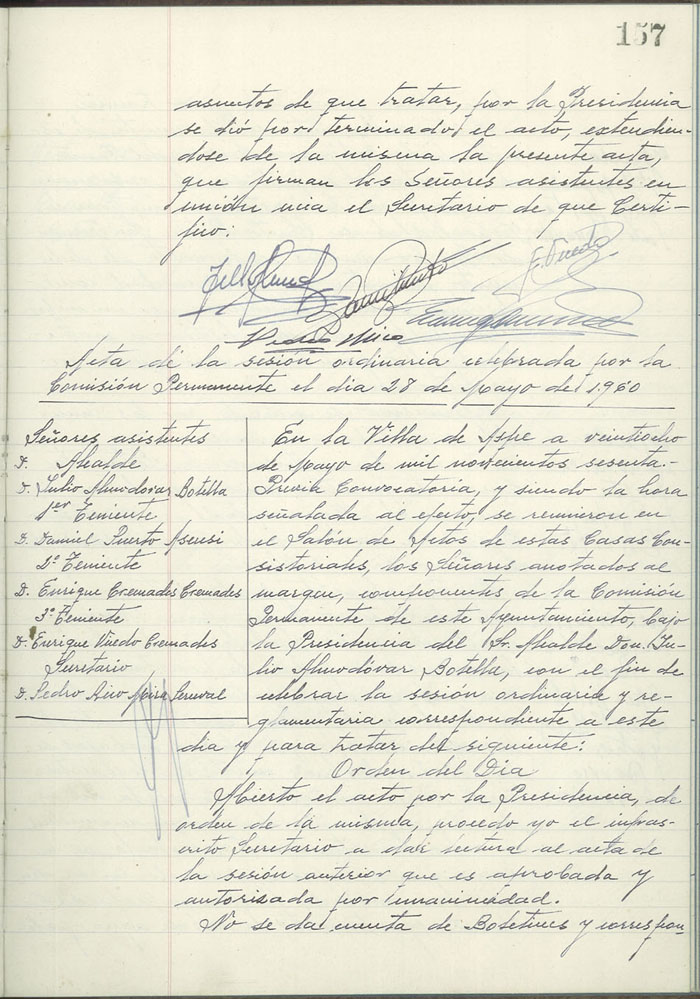 157
asuntos de que tratar, por la Presidencia
se dió por terminado el acto, extendien-
dose de la misma la presente acta,
que firman los Señores asistentes en
unión mia el Secretario de que Certi-
fico:
Pedro Aico
Acta de la sesión ordinaria celebrada por la
Comisión Permanente el dia 28 de Mayo de 1960
Señores asistentes
D. Alcalde
D. Julio Almodovar Botella
1er Teniente
D. Damiel Puerto Asensi
2º Teniente
D. Enrique Cremades Cremades
3º Teniente
D. Enrique Vuedo Cremades
Secretario
D. Pedro Aico
En la Villa de Aspe a veintiocho
de Mayo de mil novecientos sesenta.-
Previa Convocatoria, y siendo la hora
señalada al efecto, se reunieron en
el Salón de Actos de estas Casas Con-
sistoriales, los Señores anotados al
margen, componentes de la Comisión
Permanente de este Ayuntamiento, bajo
la Presidencia del Sr. Alcalde Don Ju-
lio Almodóvar Botella, con el fin de
celebrar la sesión ordinaria y re-
glamentaria correspondiente a este
dia y para tratar del siguiente:
Orden del Dia
Abierto el acto por la Presidencia, de
orden de la misma, procedo yo el infras-
crito Secretario a dar lectura al acta de
la sesión anterior que es aprobada y
autorizada por unanimidad.
No se da cuenta de Boletines y correspon-